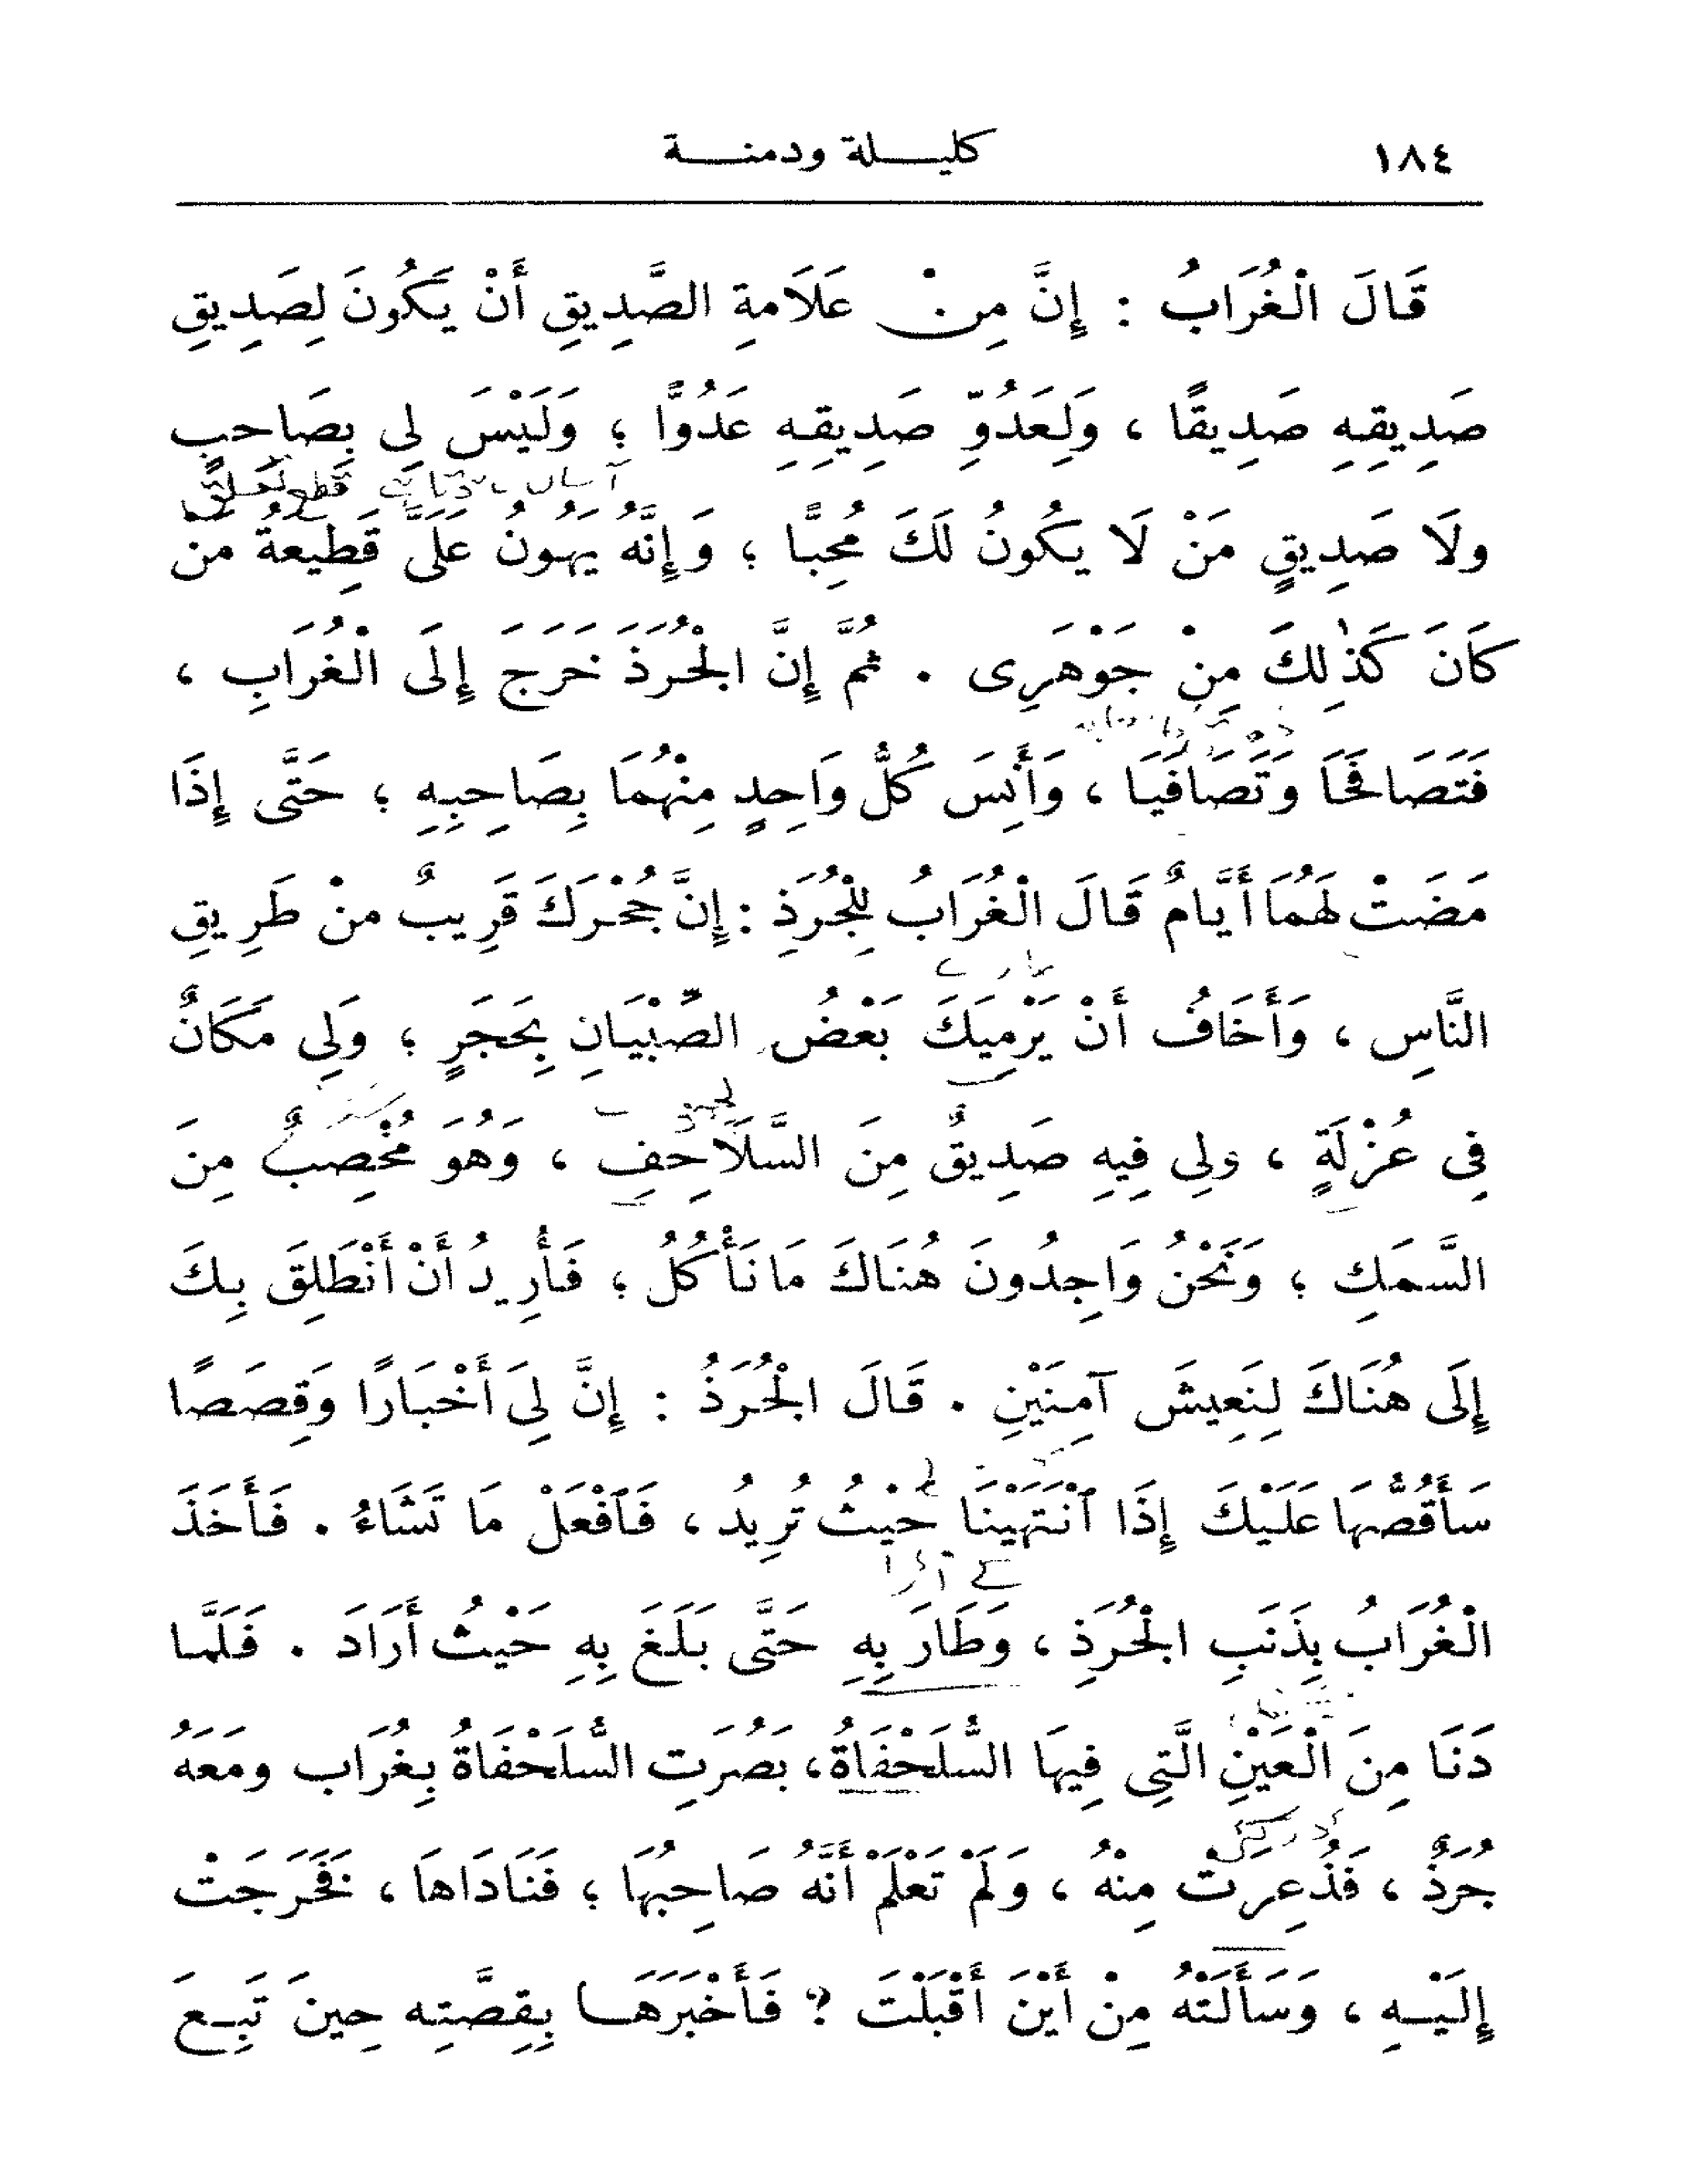 ١٨٤
كليلة ودمنة
قَالَ الْغُرَابُ : إِنَّ مِنْ عَلَامةِ الصَّدِيقِ أَنْ يَكُونَ لِصَدِيقِ
صَدِيقِهِ صَدِيقًا ، وَلِعَدُوِّ صَدِيقِهِ عَدُوًّا ؛ وَلَيْسَ لِى بِصَاحبٍ
ولَا صَدِيقٍ مَنْ لَا يكُونُ لَكَ مُحِبًّا ؛ وَإِنَّهُ يَهُونُ عَلَىَّ قَطِيعَةُ مَنْ
كَانَ كَذٰلِكَ مِنْ جَوْهَرِى . ثُمَّ إِنَّ الْجُرَذَ خَرَجَ إِلَى الْغُرَابِ ،
فَتَصَافَحَا وَتَصَافَيَا ، وَأَنِسَ كُلُّ وَاحِدٍ مِنْهُمَا بِصَاحِبِهِ ؛ حَتَّى إِذَا
مَضَتْ لَهُمَا أَيَّامٌ قَالَ الْغُرَابُ لِلْجُرَذِ : إِنَّ جُحْرَكَ قَرِيبٌ منْ طَرِيقِ
النَّاسِ ، وَأَخَافُ أَنْ يَرْمِيَكَ بَعْضُ الصِّبْيَانِ بِحَجَرٍ ؛ وَلِى مَكَانٌ
فِى عُزْلَةٍ ، ولِى فِيهِ صَدِيقٌ مِنَ السَّلَاحِفِ ، وَهُوَ مُخْصِبٌ مِنَ
السَّمَكِ ؛ وَنَحْنُ وَاجِدُونَ هُنَاكَ مَا نَأْكُلُ ؛ فَأُرِيدُ أَنْ أَنْطَلِقَ بِكَ
إِلَى هُنَاكَ لِنَعِيشَ آمِنَيْنِ . قَالَ الْجُرَذُ : إِنَّ لِىَ أَخْبَارًا وَقِصَصًا
سَأَقُصُّهَا عَلَيْكَ إِذَا ٱنْتَهَيْنَا حَيْثُ تُرِيدُ ، فَٱفْعَلْ مَا تَشَاءُ . فَأَخَذَ
الْغُرَابُ بِذَنَبِ الْجُرَذِ ، وَطَارَ بِهِ حَتَّى بَلَغَ بِهِ حَيْثُ أَرَادَ . فَلَمَّا
دَنَا مِنَ الْعَيْنِ الَّتِى فِيهَا السُّلَحْفَاةُ ، بَصُرَتِ السُّلَحْفَاةُ بِغُرَاب ومَعَهُ
جُرَذٌ ، فَذُعِرَتْ مِنْهُ ، وَلَمْ تَعْلَمْ أَنَّهُ صَاحِبُهَا ؛ فَنَادَاهَا ، فَخَرَجَتْ
إِلَيْهِ ، وَسَأَلَتْهُ مِنْ أَيْنَ أَقْبَلْتَ ؟ فَأَخْبَرَهَا بِقِصَّتِه حِينَ تَبِعَ